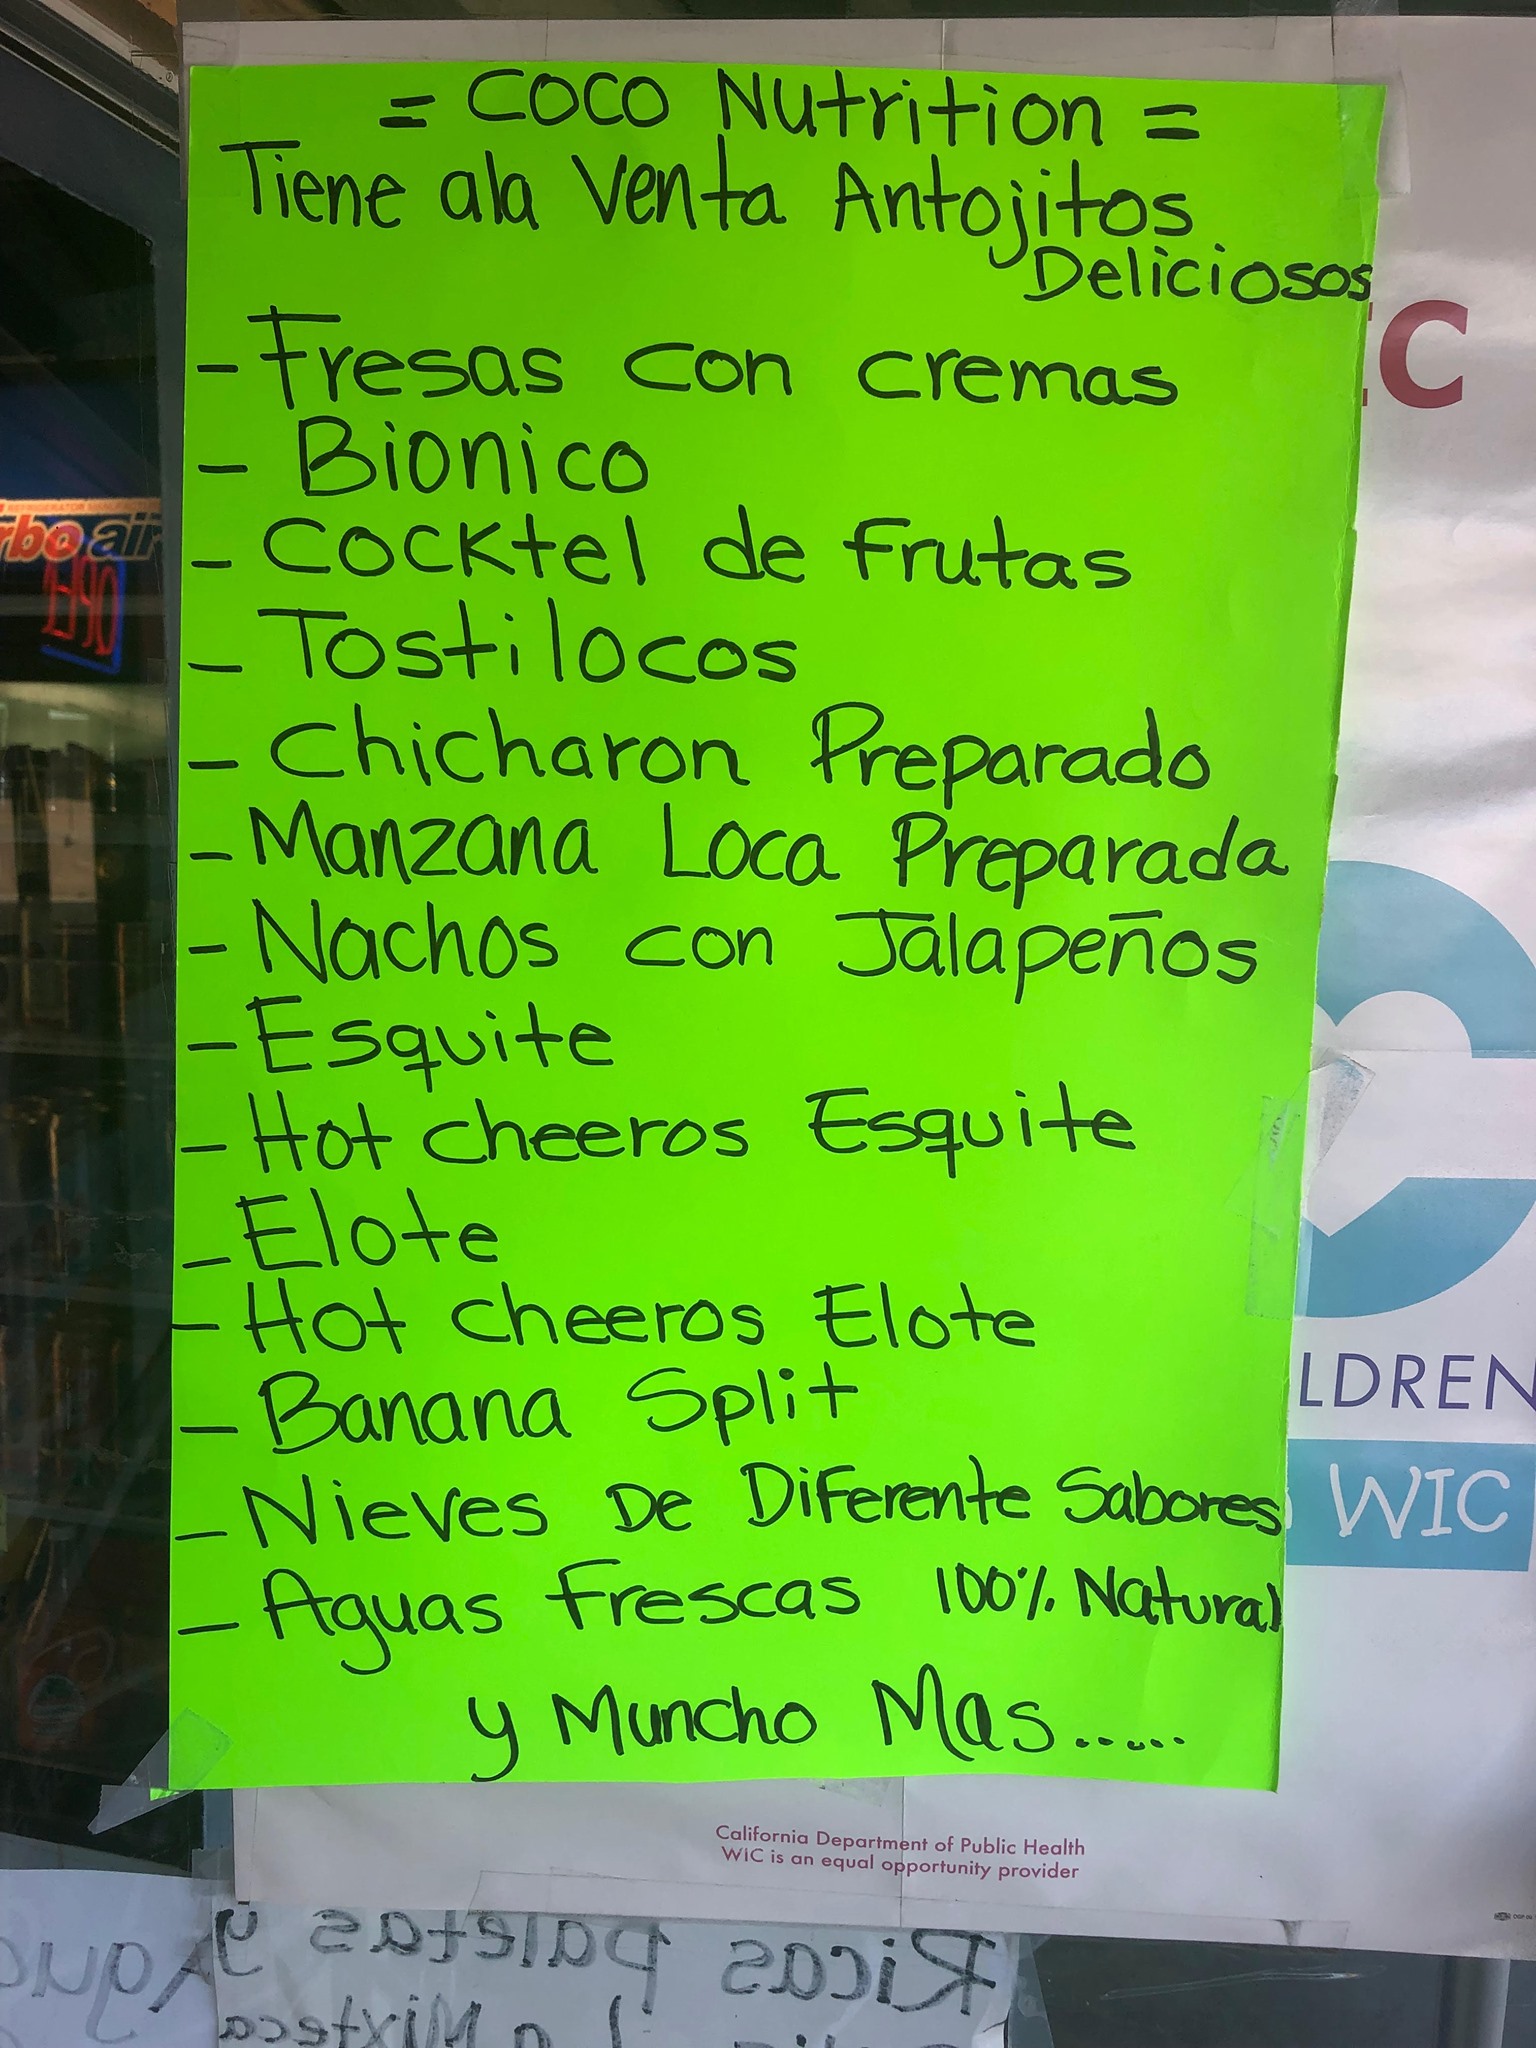 = COCO Nutrition =
Tiene ala Venta Antojitos
Deliciosos
- Fresas con cremas
- Bionico
- Cocktel de frutas
- Tostilocos
- Chicharon Preparado
- Manzana Loca Preparada
- Nachos con Jalapeños
- Esquite
- Hot cheeros Esquite
- Elote
- Hot cheeros Elote
- Banana Split
- Nieves De Diferente Sabores
- Aguas frescas 100% Natural
y Muncho Mas......
EC
LDREN
WIC
California Department of Public Health
WIC is an equal opportunity provider
rbo air
Ricas paletas y
La Mixteca
Agua